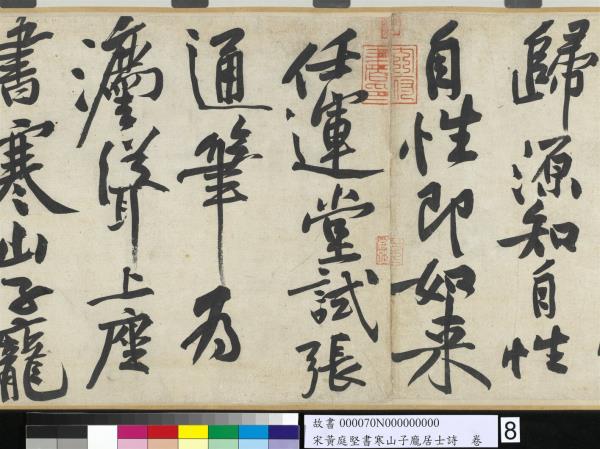 歸源知自性
自性即如來
任運堂試張
通筆為
法聳上座
書寒山子龐
故書 000070N000000000
宋黃庭堅書寒山子龐居士詩 卷
8